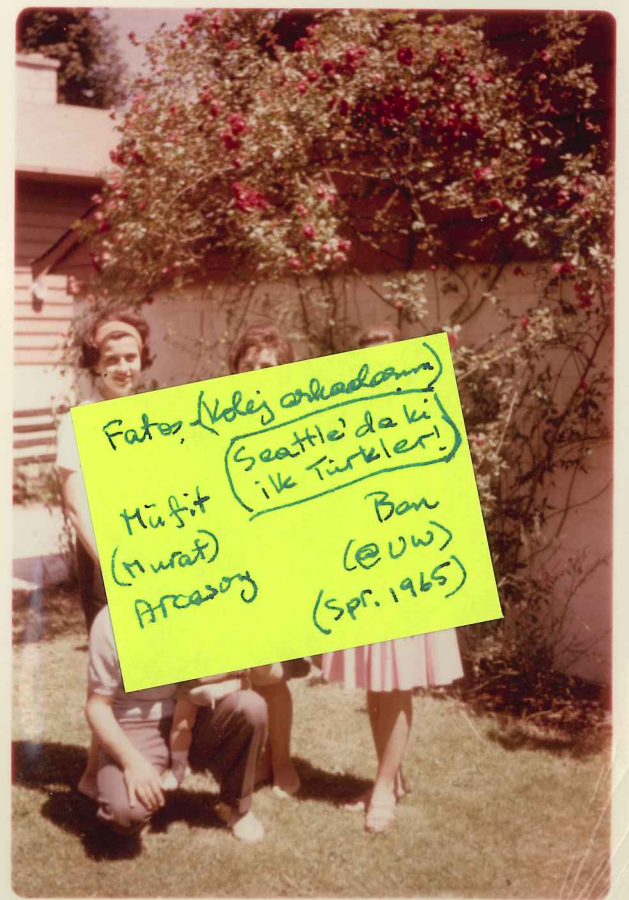 Fatoş (Kolej arkadaşım)
Seattle'daki
ilk Türkler!
Müfit
(Murat)
Arcasoy
Ben
(@UW)
(Spr. 1965)